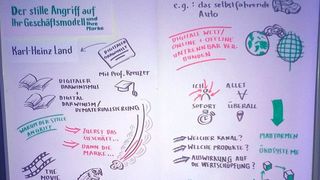 Der stille Angriff auf
Ihr Geschäftsmodell und Ihre
Marke
Karl-Heinz Land
Digitaler Darwinismus
Mit Prof. Kreutzer
Digitaler
Darwinismus
+
Digital
Darwinism/
Dematerialisierung
Warum der stille
Angriff...
→ Zuerst das
Geschäft...
→ Dann die
Marke...
The
Movie
e.g.: das selbstfahrende
Auto
Digitale Welt/
Online + Offline
untrennbar ver-
bunden
Ich
Allet
Sofort
Überall
→ Welcher Kanal?
→ Welche Produkte?
→ Auswirkung auf
die Wertschöpfung?
Plattformen
Ökosysteme